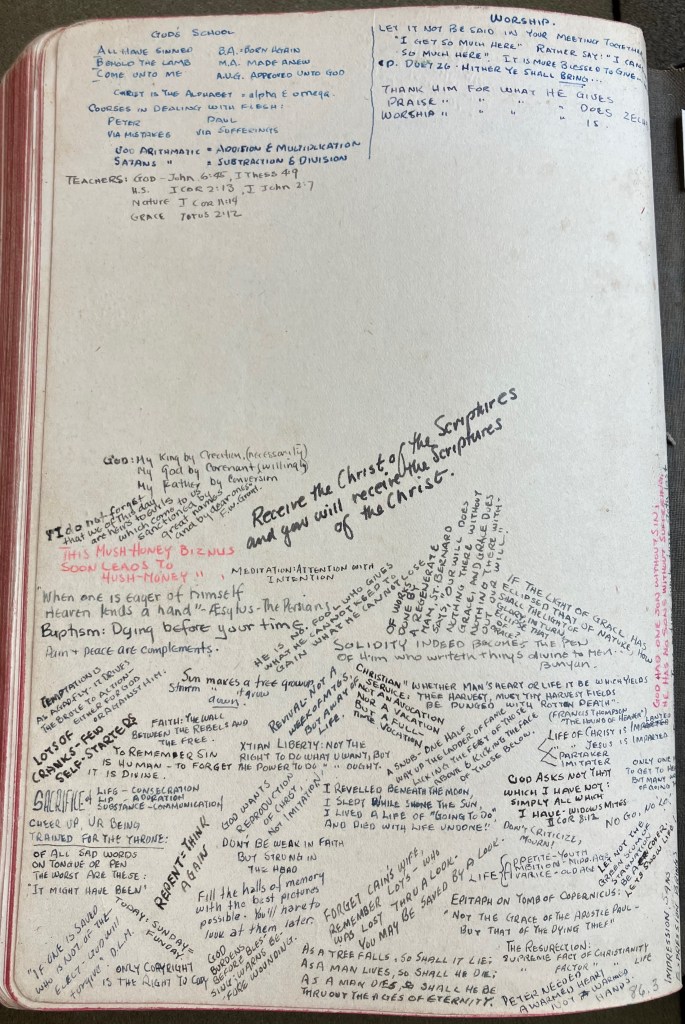 GOD'S SCHOOL
ALL HAVE SINNED B.A. = BORN AGAIN
BEHOLD THE LAMB M.A. MADE ANEW
COME UNTO ME A.U.G. APPROVED UNTO GOD
CHRIST IS THE ALPHABET = alpha & omega.
COURSES IN DEALING WITH FLESH:
PETER PAUL
VIA MISTAKES VIA SUFFERINGS
GOD ARITHMATIC = ADDITION & MULTIPLICATION
SATANS " = SUBTRACTION & DIVISION
TEACHERS: GOD - John 6:45, I THESS 4:9
H.S. I COR 2:13, I John 2:7
Nature I Cor 11:14
GRACE TITUS 2:12
WORSHIP.
LET IT NOT BE SAID IN YOUR MEETING TOGETHER
"I GET SO MUCH HERE" RATHER SAY: "I CAN
SO MUCH HERE". IT IS MORE BLESSED TO GIVE-
DUET 26 - HITHER YE SHALL BRING...
THANK HIM FOR WHAT HE GIVES
PRAISE " " " " DOES
WORSHIP " " " " IS
GOD: My King by Creation, (necessarily)
My God by Covenant (willingly)
My Father by Conversion
I do not forget
that we of this day
are heirs
which come to us
sanctioned by
great names
and by
F.W. Grant.
Receive the Christ of the Scriptures
and you will receive the Scriptures
of the Christ.
THIS MUSH-HUNEY BIZNUS
SOON LEADS TO
HUSH-MONEY"
MEDITATION: ATTENTION WITH
INTENTION
"When one is eager of himself
Heaven lends a hand" - Æsylus - The Persian
Baptism: Dying before your time.
Pain + peace are complements.
HE IS NO FOOL WHO GIVES
WHAT HE CANNOT KEEP TO
GAIN WHAT HE CANNOT LOSE
OF WORKS
DONE BY
A REGENERATE
MAN, ST. BERNARD
SAYS, "OUR WILL DOES
NOTHING THERE WITHOUT
GRACE, AND GRACE DOES
NOTHING THERE WITH-
OUT OUR WILL."
IF THE LIGHT OF GRACE HAS
ECLIPSED THAT OF NATURE, HOW
SHALL THE LIGHT OF
GLORY IN TURN
ECLIPSE THAT
OF GRACE?
GOD HAD ONE SON WITHOUT SIN;
HE HAS NO SONS WITHOUT SUFFERING.
SOLIDITY INDEED BECOMES THE PEN
Of Him who writeth things divine to men.
Bunyan.
TEMPTATION IS
IT DRIVES
THE BRUTE TO ACTION
EITHER FOR GOD
OR AGAINST HIM.
Sun makes a tree grow up
Storm " " " grow
down.
REVIVAL - NOT A
WEEK OF MTGS.
BUT A WAY OF
LIFE.
CHRISTIAN
SERVICE:
NOT AN AVOCATION
NOR A VACATION
BUT A FULL
TIME VOCATION
"WHETHER MAN'S HEART OR LIFE IT BE WHICH YIELDS
THEE HARVEST, MUST THY HARVEST FIELDS
BE DUNGED WITH ROTTEN DEATH".
(FRANCIS THOMPSON
"THE HOUND OF HEAVEN")
LOTS OF
CRANKS - FEW
SELF-STARTERS
FAITH: THE WALL
BETWEEN THE REBELS AND
THE FREE.
TO REMEMBER SIN
IS HUMAN - TO FORGET
IT IS DIVINE.
XTIAN LIBERTY: NOT THE
RIGHT TO DO WHAT U WANT, BUT
THE POWER TO DO " " OUGHT.
A SNOB: ONE HALF
WAY UP THE LADDER OF FAME
LICKING THE FEET OF THOSE
ABOVE & KICKING THE FACE
OF THOSE BELOW.
LIFE OF CHRIST IS IMPARTED
JESUS IS
PARTAKER
IMITATER
SACRIFICE
LIFE - CONSECRATION
LIP - ADORATION
SUBSTANCE - COMMUNICATION
GOD WANTS
REPRODUCTION
OF CHRIST,
NOT IMITATION!
I REVELLED BENEATH THE MOON,
I SLEPT WHILE SHONE THE SUN,
I LIVED A LIFE OF "GOING TO DO"
AND DIED WITH LIFE UNDONE!"
GOD ASKS NOT THAT
WHICH I HAVE NOT:
SIMPLY ALL WHICH
I HAVE - WIDOWS MITES
II COR 8:12
ONLY ONE
TO GET TO
BUT MANY
OF GOING
NO GO, NO LO.
CHEER UP, UR BEING
TRAINED FOR THE THRONE:
REPENT = THINK
AGAIN
DONT BE WEAK IN FAITH
BUT STRONG IN
THE HEAD
DON'T CRITICIZE,
MOURN!
OF ALL SAD WORDS
ON TONGUE OR PEN
THE WORST ARE THESE:
"IT MIGHT HAVE BEEN"
Fill the halls of memory
with the best pictures
possible. You'll have to
look at them later.
FORGET CAINS WIFE,
REMEMBER LOTS - WHO
WAS LOST THRU A LOOK -
YOU MAY BE SAVED BY A LOOK.
LIFE
APPETITE - YOUTH
AMBITION - MIDD. AGE
AVARICE - OLD AGE
EPITAPH ON TOMB OF COPERNICUS:
"NOT THE GRACE OF THE APOSTLE PAUL -
BUT THAT OF THE DYING THIEF"
TODAY: SUNDAY =
FUNDAY.
"IF ONE IS SAVED
WHO IS NOT OF THE
ELECT, GOD WILL
forgive". D.L.M.
ONLY COPYRIGHT
IS THE RIGHT TO COPY
GOD
BURDENS
BEFORE BLES
SING, WARNS BE-
FORE WOUNDING.
AS A TREE FALLS, SO SHALL IT LIE;
AS A MAN LIVES, SO SHALL HE DIE;
AS A MAN DIES, SO SHALL HE BE
THRUOUT THE AGES OF ETERNITY.
THE RESURECTION:
SUPREME FACT OF CHRISTIANITY
" FACTOR " " LIFE
PETER NEEDED
A WARMED HEART
NOT WARMED
HANDS.
86.3